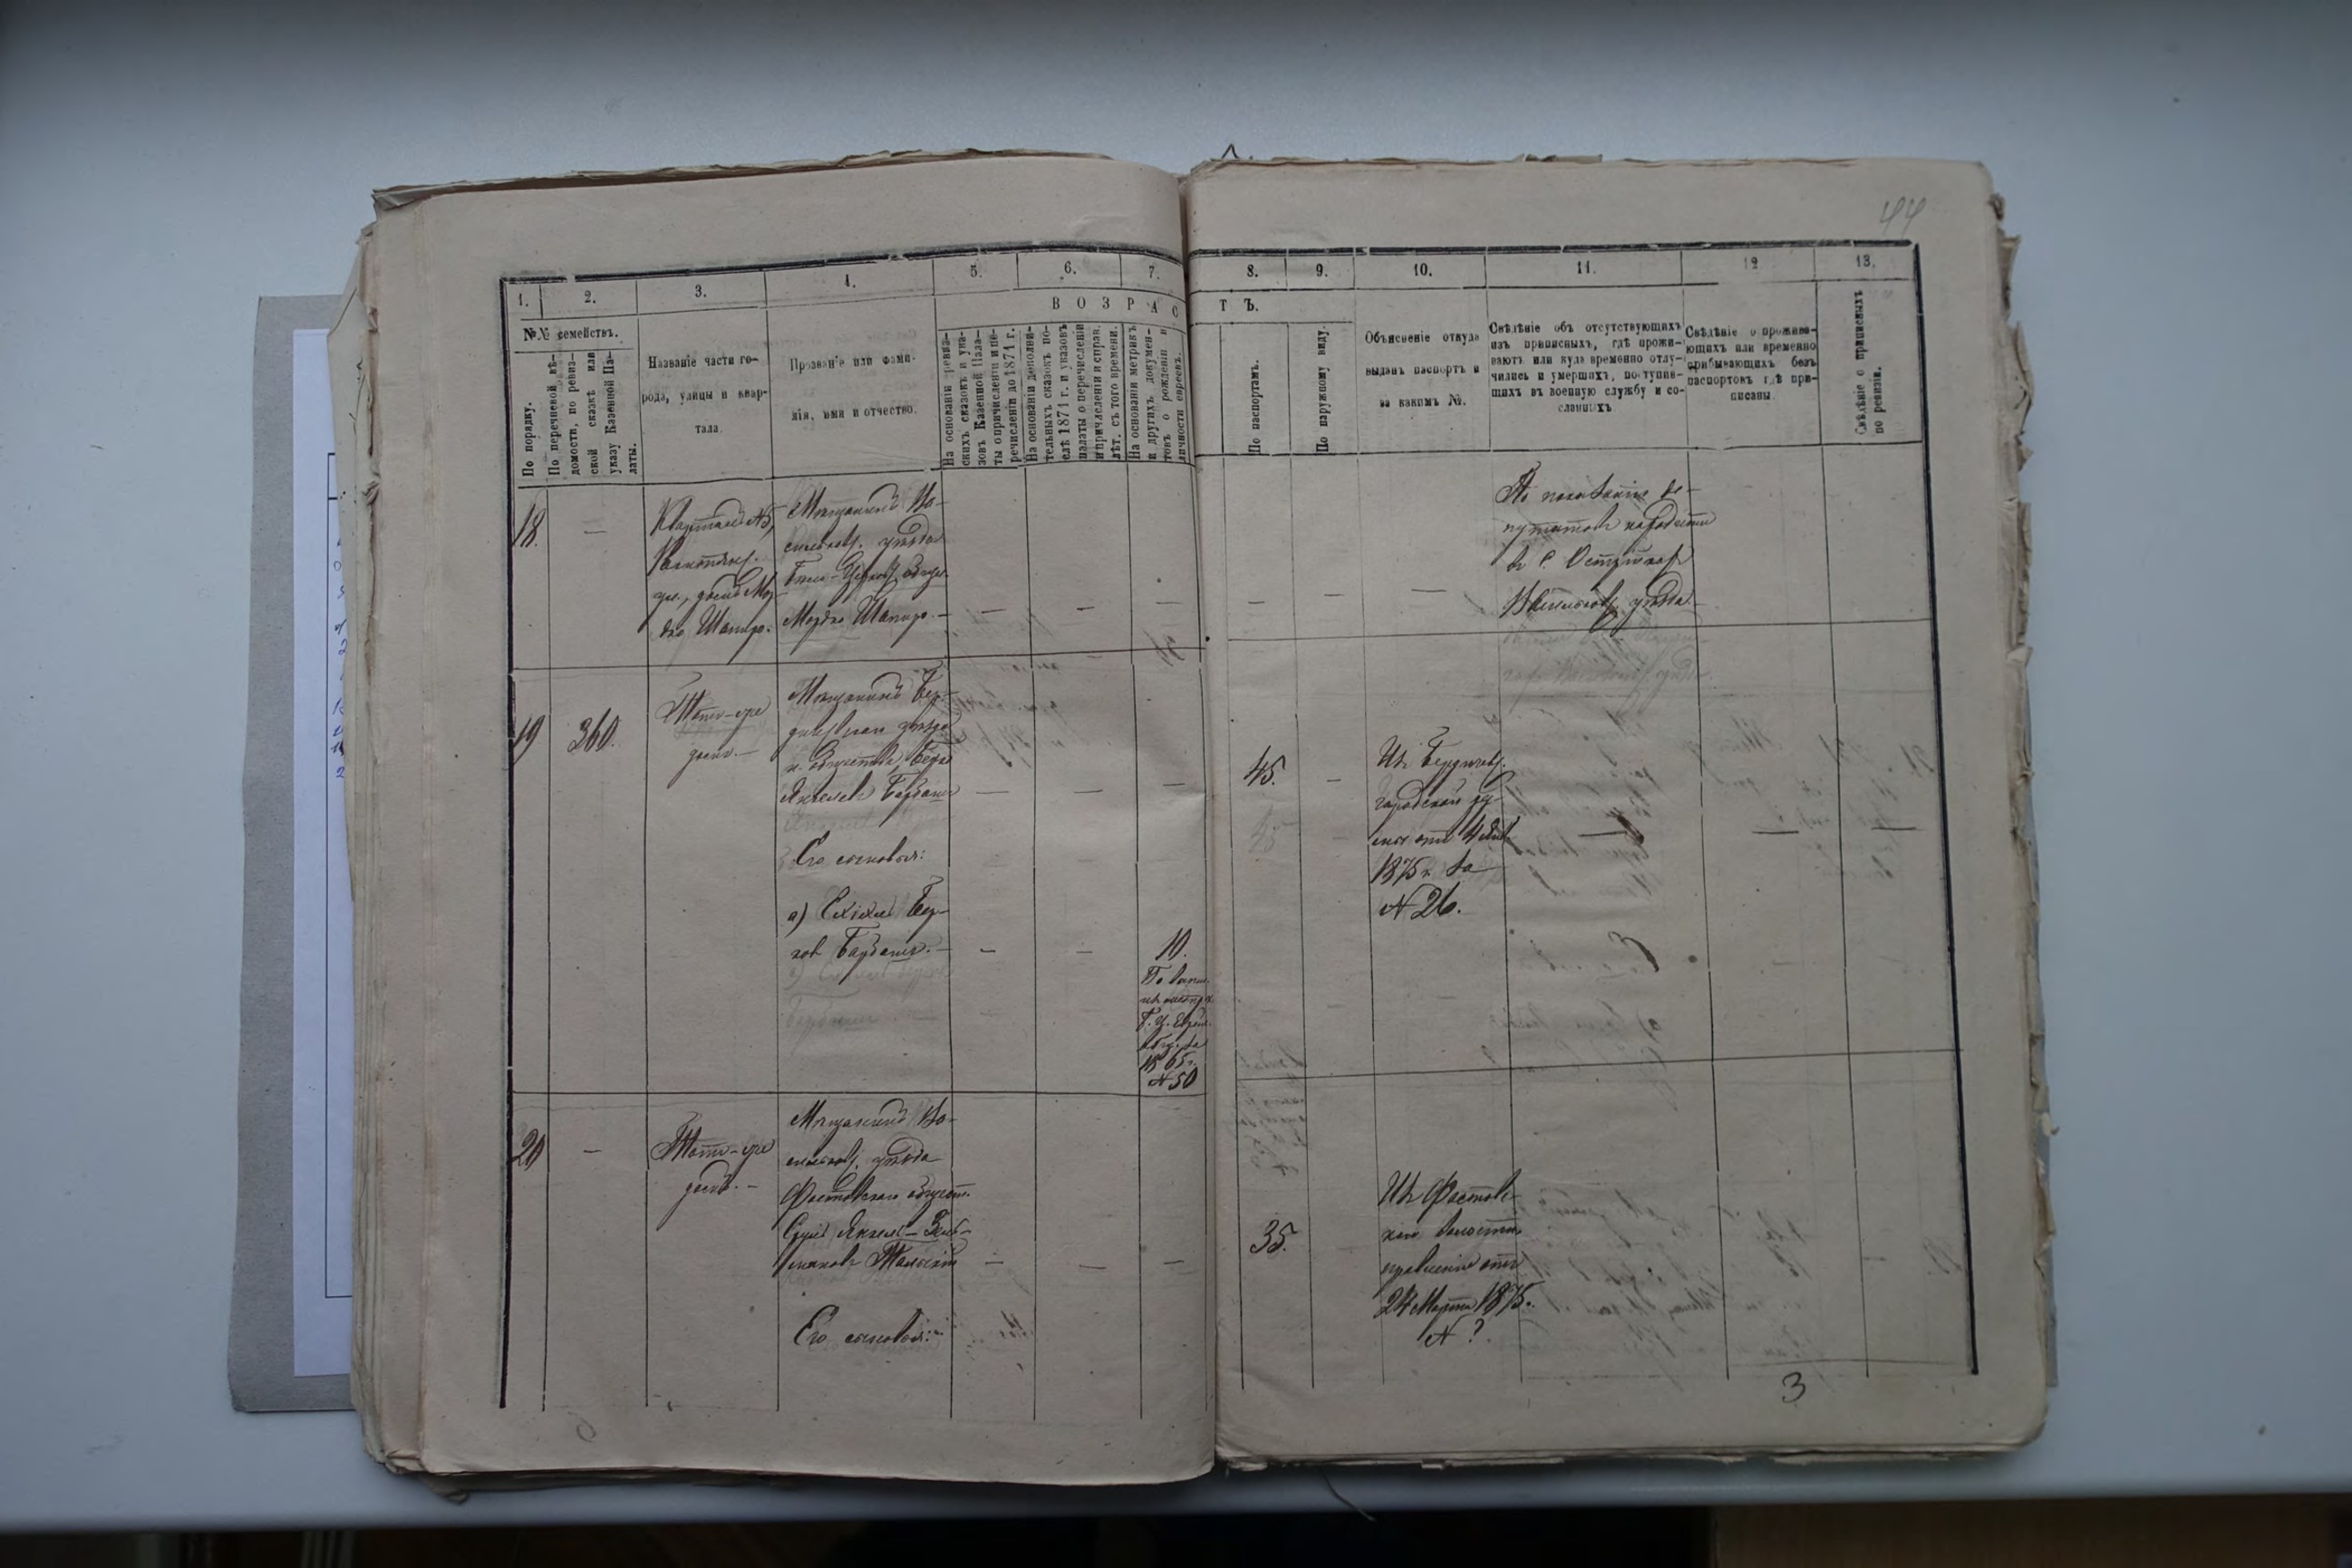 44
1.
2.
3.
4.
5.
6.
7.
8.
9.
10.
11.
12
13.
В О З Р А С
Т Ъ.
№№ семействъ.
По порядку.
По перечневой вѣ-
домости, по ревиз-
ской сказкѣ или
указу Казенной Па-
латы.
Названіе части го-
рода, улицы и квар-
тала.
Прозваніе или фами-
лія, имя и отчество.
На основаніи ревиз-
скихъ сказокъ и ука-
зовъ Казенной Пала-
ты о причисленіи и пе-
речисленіи до 1871 г.
На основаніи дополни-
тельныхъ сказокъ по-
слѣ 1871 г. и указовъ
палаты о перечисленіи
и причисленіи и справ.
лѣт. съ того времени.
На основаніи метрикъ
и другихъ докумен-
товъ о рожденіи и
личности евреевъ.
По паспортамъ.
По наружному виду.
Объясненіе откуда
выданъ паспортъ и
за какимъ №.
Свѣдѣніе объ отсутствующихъ
изъ приписныхъ, гдѣ прожи-
ваютъ или куда временно отлу-
чились и умершихъ, поступив-
шихъ въ военную службу и со-
сланныхъ
Свѣдѣніе о прожива-
ющихъ или временно
прибывающихъ безъ
паспортовъ гдѣ при-
писаны.
Свѣдѣніе о приписныхъ
по ревизіи.
18.
—
Кварталъ №5,
ул., домъ Мор-
дко Шапиро.
Мѣщанинъ Ва-
сильков. уѣзда
Бѣло-Церков. общес.
Мордко Шапиро. —
— — — — — —
По показанію де-
путатовъ находится
въ с.
Васильков. уѣзда. —
19
360.
Тотъ-же
домъ. —
Мѣщанинъ Бер-
дичевскаго уѣзда
и общества, Берко
Янкелевъ
— — —
Его сыновья:
а) Ехіель Бер-
ковъ —
— —
10.
По выпис.
изъ метрик.
Б. Ц. Еврей.
общ. за
1865 г.
№ 50
45.
—
Изъ Бердичев.
городской ду-
мы отъ 4
1875 г. за
№ 26.
— — —
20
—
Тотъ-же
домъ. —
Мѣщанинъ Ва-
сильков. уѣзда
Фастовскаго общест.
Сруль Янкель-Зель-
мановъ
— — —
Его сыновья:
35.
Изъ Фастовс-
каго волостн.
правленія отъ
24 Марта 1875 г.
№ ?
3